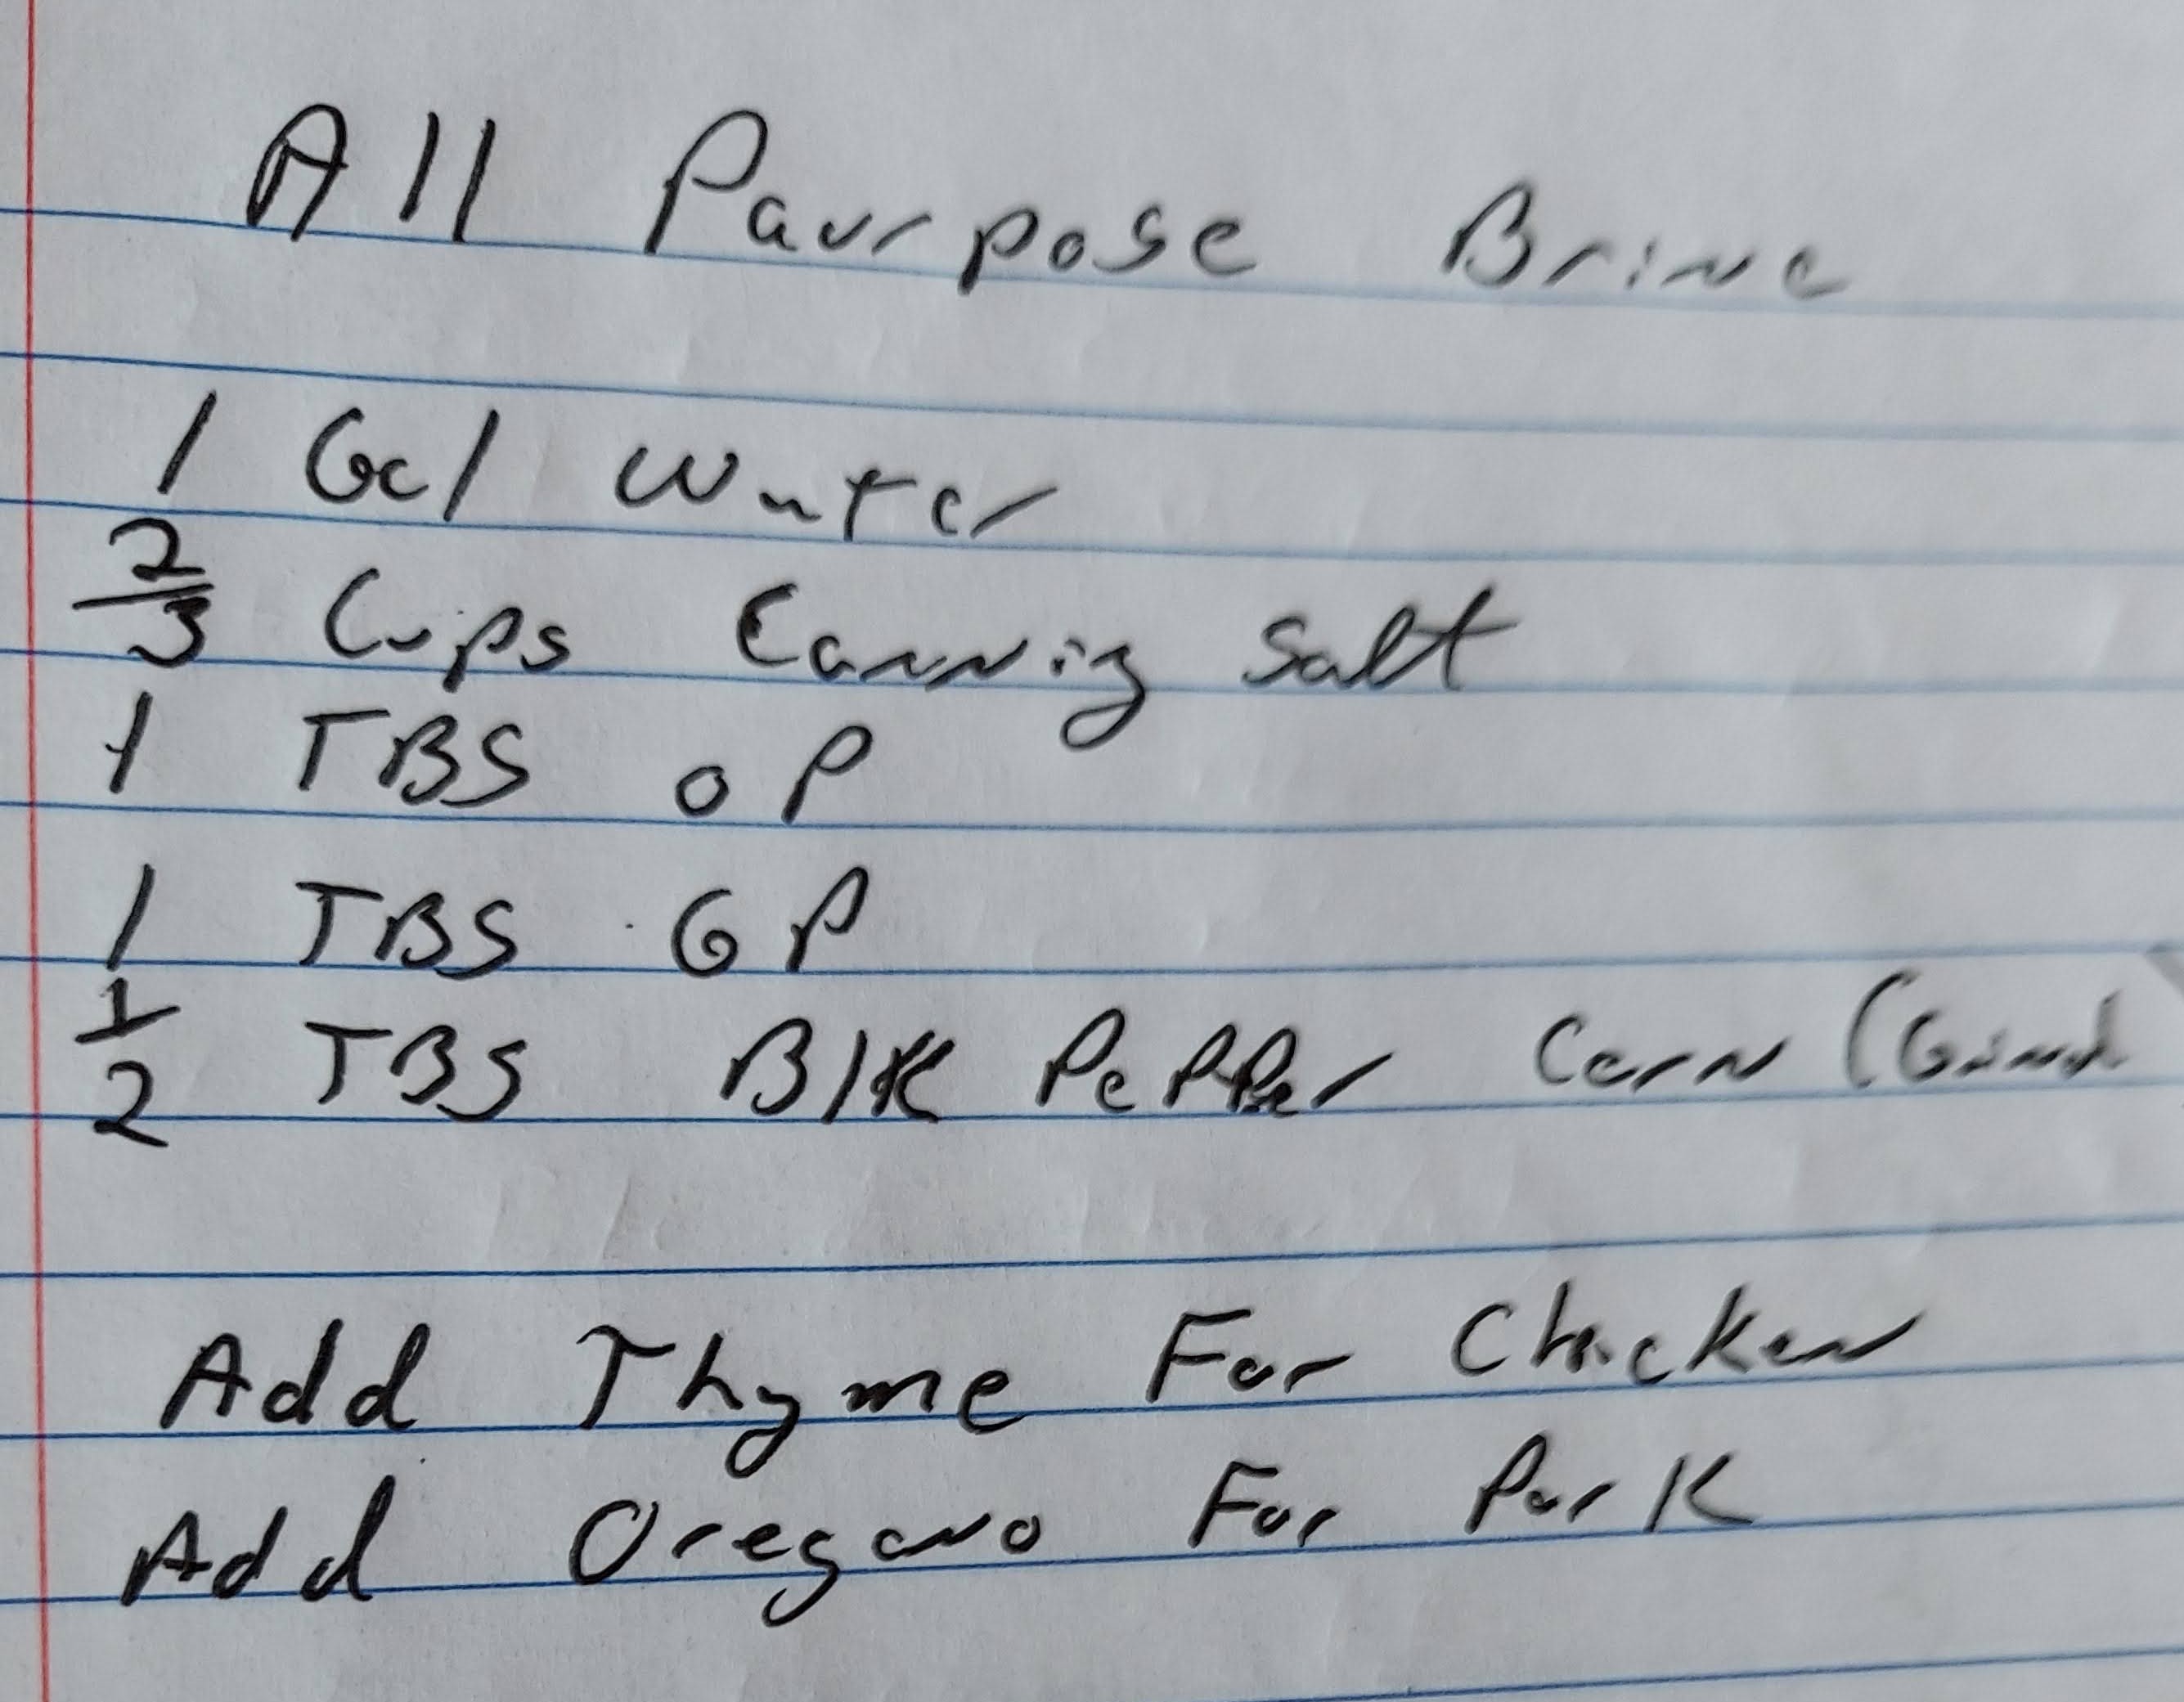 All Paurpose Brine
1 Gal Water
2/3 Cups Cannig Salt
1 TBS OP
1 TBS GP
1/2 TBS Blk Pepper Corn (Grind)
Add Thyme For Chicken
Add Oregano For Pork